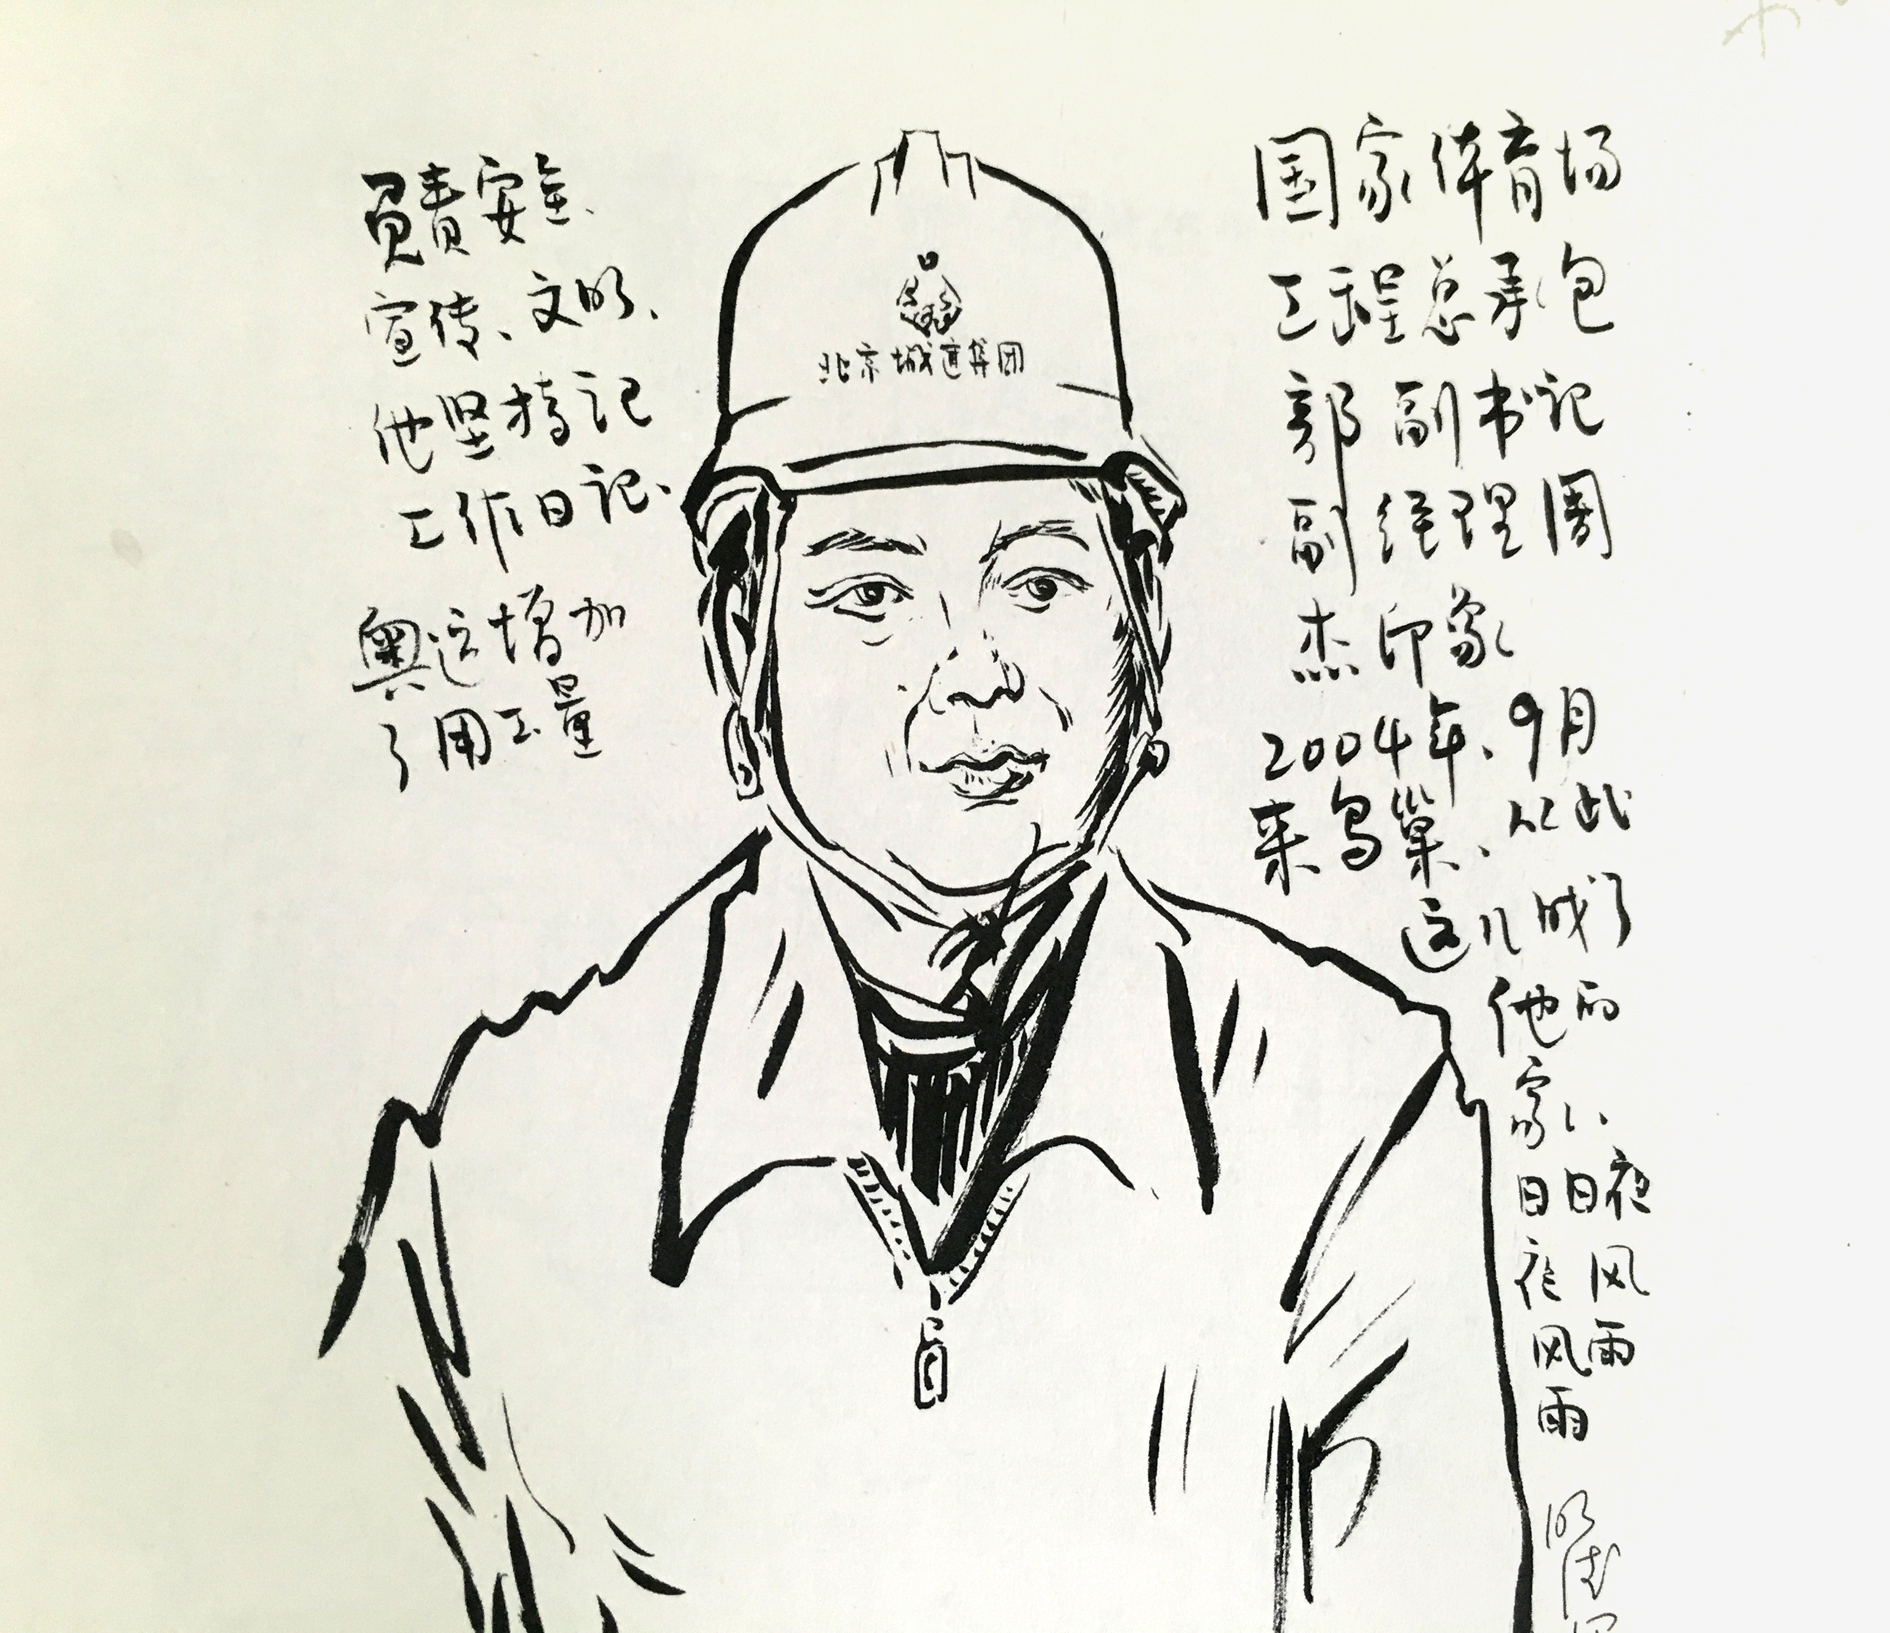 国家体育场
工程总承包
部副书记
副经理周
杰印象
2004年、9月
来鸟巢、从此
这儿成了
他的
家、
日日夜
夜风
风雨
雨
负责安全、
宣传、文明、
他坚持记
工作日记、
奥运增加
了用工量
北京城建集团